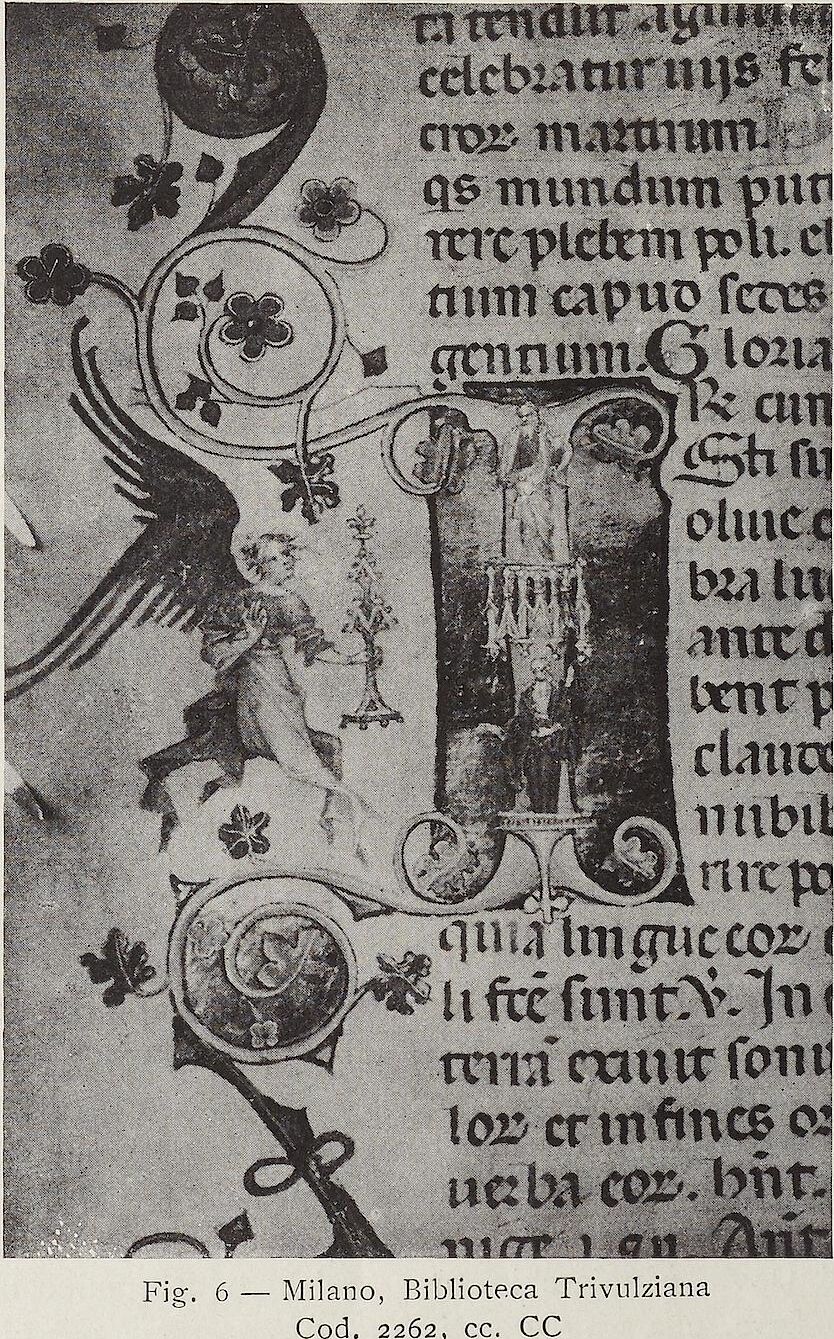 celebratur iijs fe
croꝝ martirium.
qs mundum
rere plebem poli.
tium capud sedes
gentium. Gloria
Re cun
Sti
oliue
bra lu
ante d
bent p
claude
nubil
rire po
quia lingue eoꝝ
li fcē sunt. V. In
terrā exiuit sonu
loꝝ et in fines
uerba eoꝝ. bn̄t.
Fig. 6 — Milano, Biblioteca Trivulziana
Cod. 2262, cc. CC